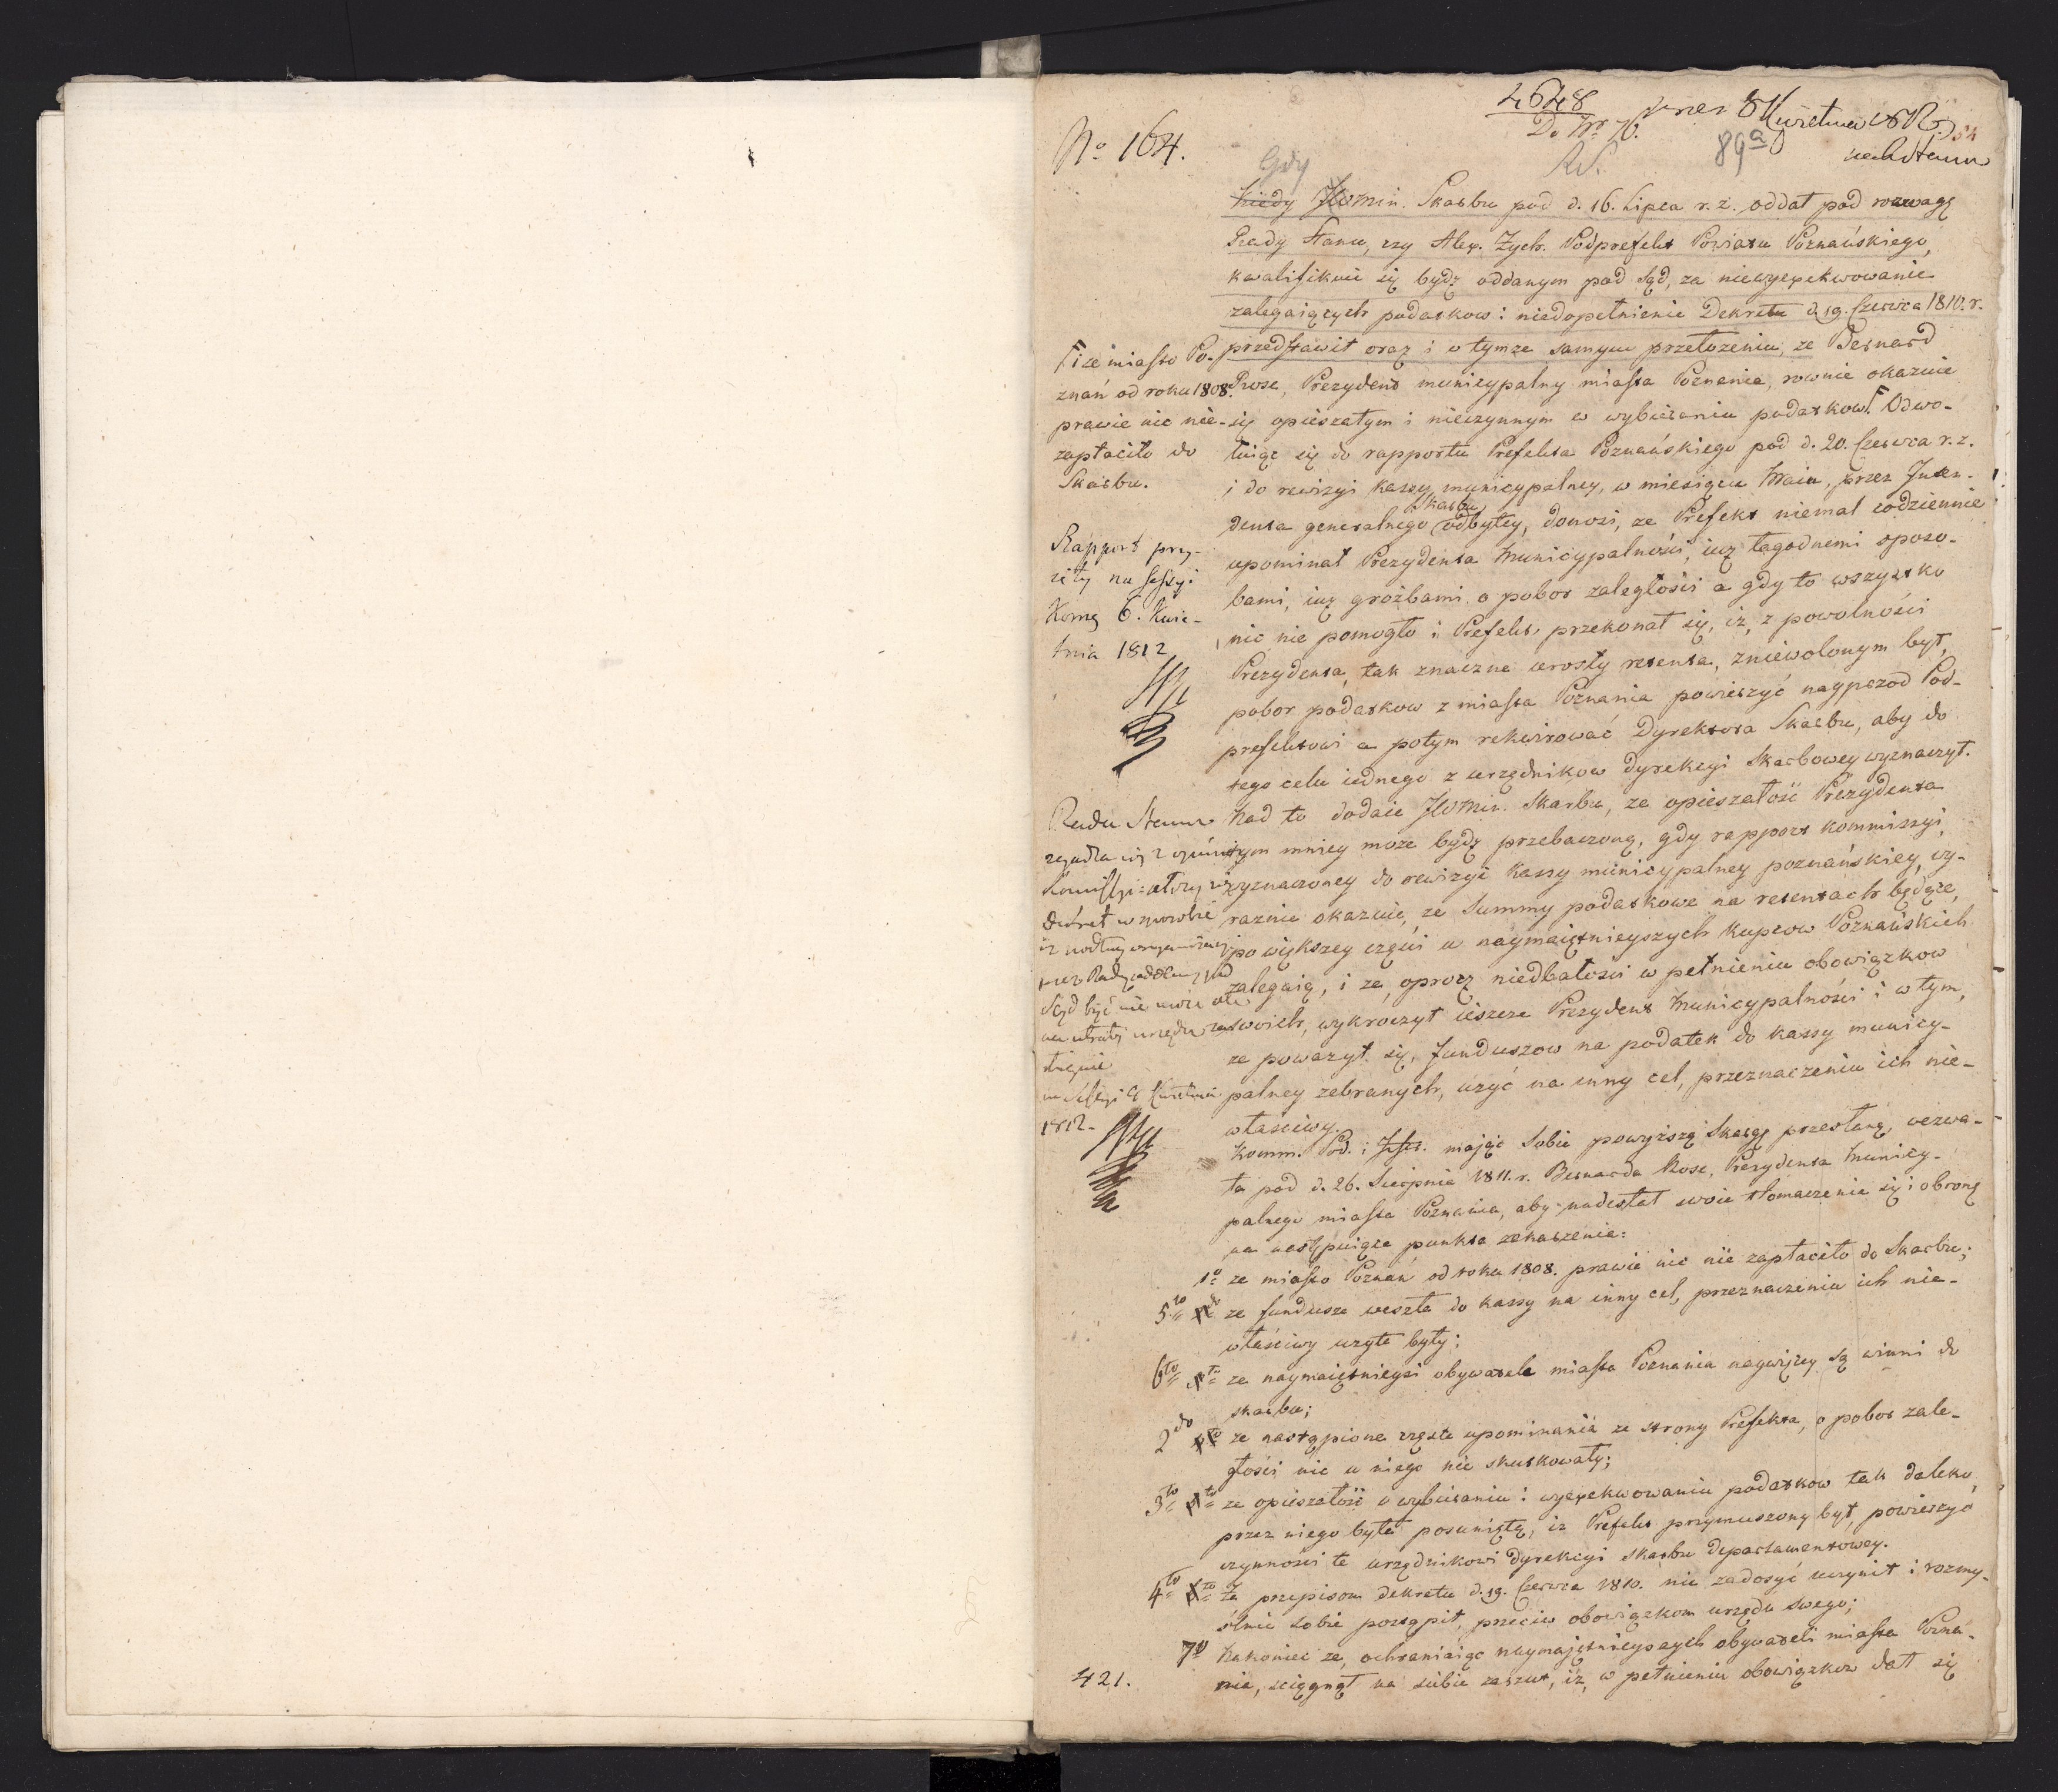 4648
Do Nr 76.
8 Kwietnia 1812.
54
89a
No 164.
Gdy
Kiedy JW Min. Skarbu pod d. 16. Lipca r. z. oddał pod rozwagę
Rady Stanu, czy Alex. Zych. Podprefekt Powiatu Poznańskiego,
kwalifikuie się bydź oddanym pod sąd, za niewyexekwowanie
zalegaiących podatkow i niedopełnienie Dekretu d. 19. Czerwca 1810. r.
przedstawił oraz i w tymze samym przełozeniu, ze Bernard
Rose, Prezydent municypalny miasta Poznania, rownie okazuie
się opieszałym i nieczynnym w wybieraniu podatkow. F Odwo-
łuiąc się do rapportu Prefekta Poznańskiego pod d. 20. Czerwca r. z.
i do rewizyi kassy municypalney, w miesiącu Maiu, przez Inten-
denta generalnego Skarbu odbytey, donosi, ze Prefekt niemal codziennie
upominał Prezydenta Municypalności, iuz łagodnemi sposo-
bami, iuz groźbami o pobor zaległości a gdy to wszystko
nic nie pomogło i Prefekt przekonał się, iz, z powolności
Prezydenta, tak znaczne urosły retenta, zniewolonym był,
pobor podatkow z miasta Poznania powierzyć nayprzod Pod-
prefektowi a potym rekwirować Dyrektora Skarbu, aby do
tego celu iednego z urzędnikow dyrekcyi Skarbowey wyznaczył.
Nad to dodaie JW Min. Skarbu, ze opieszałość Prezydenta
tym mniey moze bydź przebaczoną, gdy rapport kommissyi,
wyznaczoney do rewizyi kassy municypalney poznańskiey, wy-
raznie okazuie, ze Summy podatkowe na retentach będące,
po większey części u naymaiętnieyszych kupcow Poznańskich
zalegaią, i ze, oprocz niedbałości w pełnieniu obowiązkow
swoich, wykroczył ieszcze Prezydent Municypalności i w tym,
ze powazył się, funduszow na podatek do kassy municy-
palney zebranych, uzyć na inny cel, przeznaczeniu ich nie-
właściwy.
Komm. Pod. i Instr. mając Sobie powyższą Skargę przesłaną, wezwa-
ła pod d. 26. Sierpnia 1811. r. Bernarda Rose, Prezydenta Municy-
palnego miasta Poznania, aby nadesłał swoie tłomaczenie się i obronę
na następuiące punkta zaskarzenia:
1o ze miasto Poznań od roku 1808. prawie nic nie zapłaciło do Skarbu;
5to ze fundusze weszłe do kassy na inny cel, przeznaczeniu ich nie-
właściwy uzyte były;
6to ze naymaiętnieysi obywatele miasta Poznania naywięcey są winni do
skarbu;
2do ze nastąpione częste upominania ze strony Prefekta, o pobor zale-
głości nic u niego nie skutkowały;
3to ze opieszałość w wybieraniu i wyexekwowaniu podatkow tak daleko
przez niego była posuniętą, iz Prefekt przymuszony był, powierzyć
czynności te urzędnikowi dyrekcyi skarbu departamentowey.
4to Ze przepisom dekretu d. 19. Czerwca 1810. nie zadosyć uczynił i rozmy-
ślnie sobie postąpił, przeciw obowiązkom urzędu swego;
7o Nakoniec ze, ochraniaiąc naymajętnieyszych obywateli miasta Pozna-
nia, sciągnął na siebie zarzut, iz, w pełnieniu obowiązkow dał się
F i ze miasto Po-
znań od roku 1808.
prawie nic nie-
zapłaciło do
Skarbu.
Rapport przy-
ięty na Sessyi
Komm. 6. Kwie-
tnia 1812
Rada Stanu
zgadza się z opinią
Sąd być nie może
na Sessyi 9 Kwietnia
1812.
421.